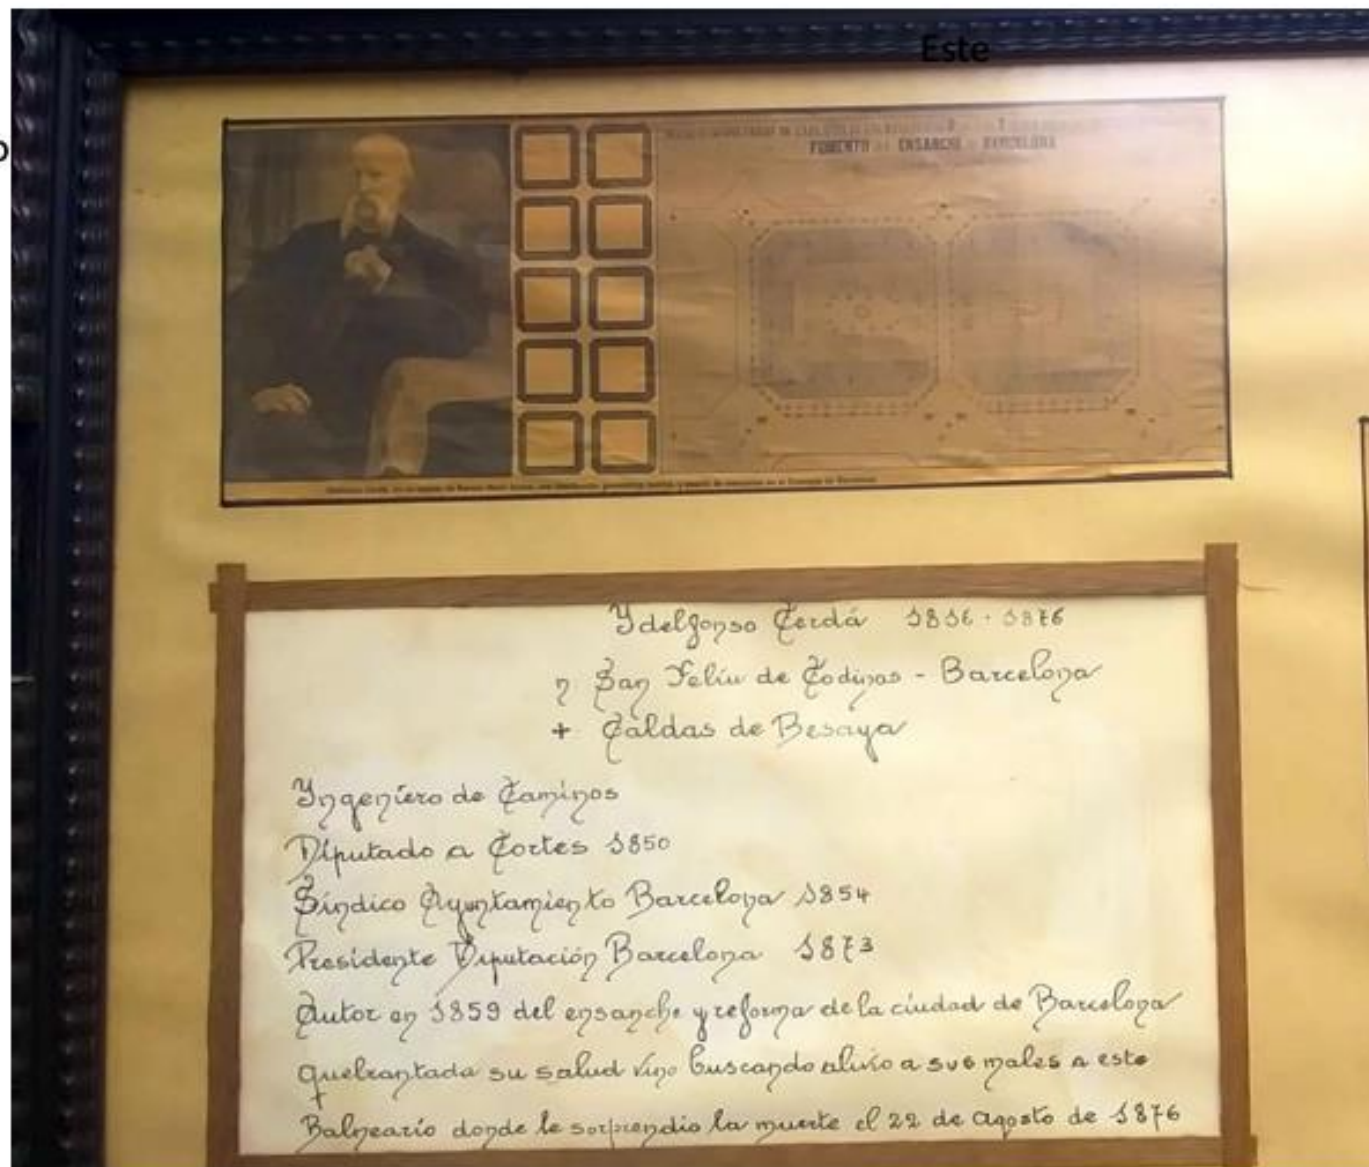 Este
FOMENTO DEL ENSANCHE DE BARCELONA
Yldelfonso Cerdá 1816 - 1876
n San Feliu de Codinas - Barcelona
+ Caldas de Besaya
Yngeniero de Caminos
Diputado a Cortes 1850
Síndico Ayuntamiento Barcelona 1854
Presidente Diputación Barcelona 1873
Autor en 1859 del ensanche y reforma de la ciudad de Barcelona
quebrantada su salud vino buscando alivio a sus males a este
Balneario donde le sorprendio la muerte el 22 de agosto de 1876